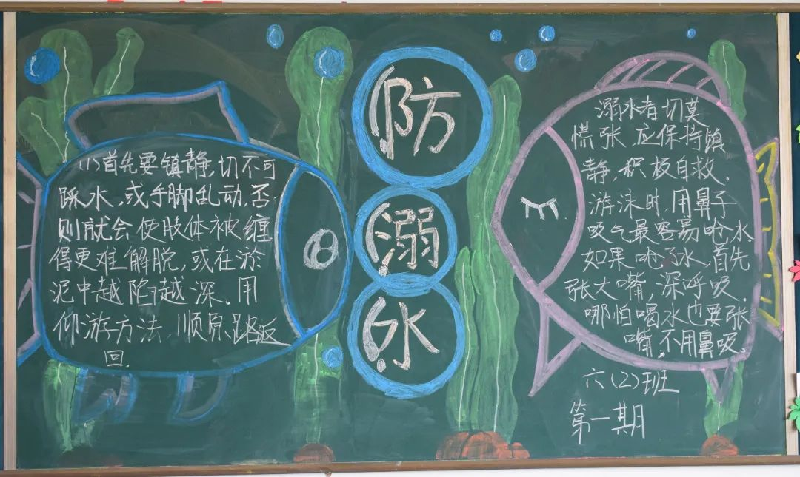 防
溺
水
(1)首先要镇静,切不可
踩水,或手脚乱动,否
则就会使肢体被缠
得更难解脱,或在淤
泥中越陷越深。用
仰游方法,顺原路返
回。
溺水者切莫
慌张,应保持镇
静,积极自救。
游泳时,用鼻子
吸气最容易呛水,
如果呛了水,首先
张大嘴,深呼吸,
哪怕喝水也要张
嘴,不用鼻吸。
六(2)班
第一期